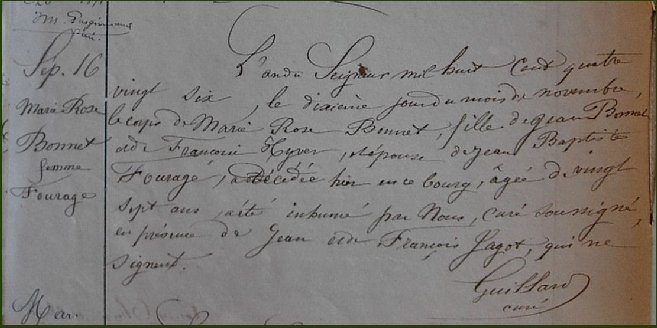 Sep. 16
Marie Rose
Bonnet
femme
Fourage
L'an du Seigneur mil huit cent quatre
vingt six, le dixième jour du mois de novembre,
le corps de Marie Rose Bonnet, fille de Jean Bonnet
et de Françoise Hyver, épouse de Jean Baptiste
Fouragé, décédée hier en ce bourg, âgée de vingt
sept ans, a été inhumé par Nous, curé soussigné,
en présence de Jean et de François Pagot, qui ne
signent.
Guillard
curé
Mar